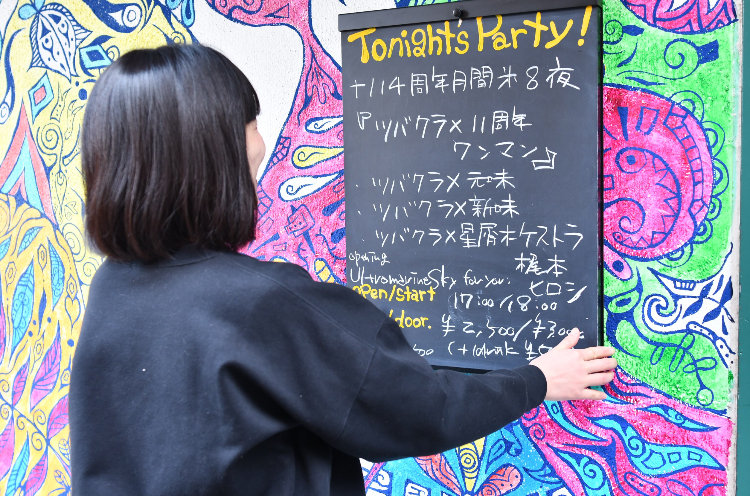 Tonight's Party!
ナハ14周年月間 第8夜
ツバクラメ11周年
ワンマン♪
・ツバクラメ元味
・ツバクラメ新味
・ツバクラメ星屑オケストラ
opening
Ultramarine Sky for you:
梶本
ヒロシ
open/start 17:00/18:00
/door. ¥2,500/¥3,000
(+1drink